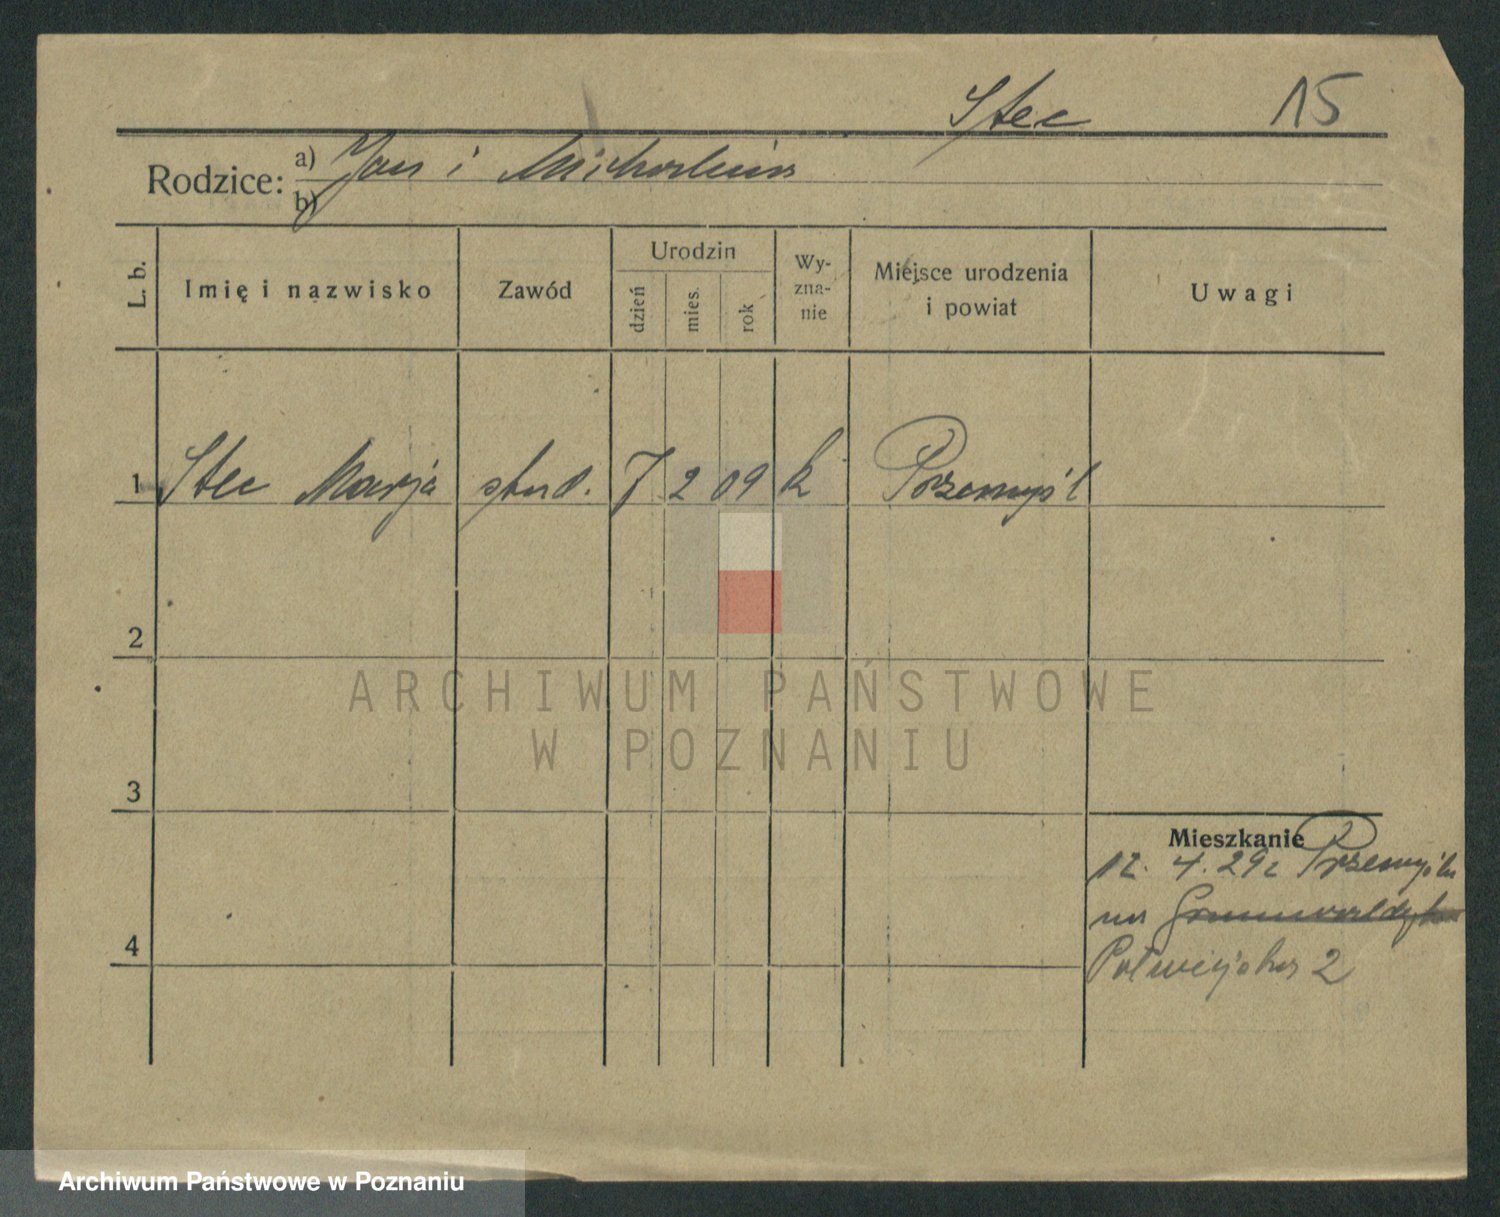 Stec 15
Rodzice: a) Jan i Michalina
b)
L. b. Imię i nazwisko Zawód Urodzin dzień mies. rok Wyznanie Miejsce urodzenia i powiat Uwagi
1 Stec Marja stud. 7 2 09 k Przemyśl
2
ARCHIWUM PAŃSTWOWE
W POZNANIU
3
Mieszkanie
12. 4. 29 z Przemyśla
na Grunwaldzka
4
Potwiejska 2
Archiwum Państwowe w Poznaniu